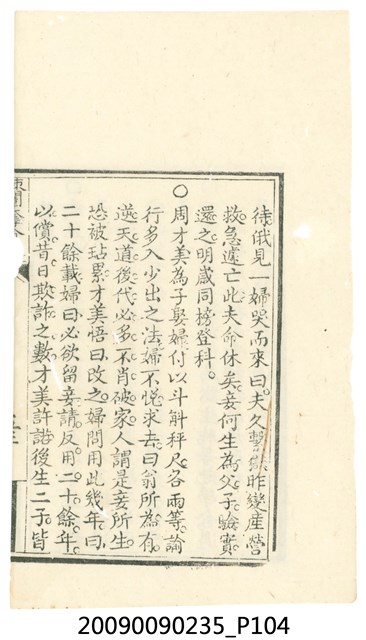 待俄見一婦哭而來曰夫久繫獄昨變產營
救急遽亡此夫命休矣妾何生為父子驗實
還之明歲同榜登科
○周才美為子娶婦付以斗斛秤尺各兩等論
行多入少出之法婦不悅求去曰翁所為有
逆天道後代必多不肖破家人謂是妾所生
恐被玷累才美悟曰改之婦問用此幾年曰
二十餘載婦曰必欲留妾請反用二十餘年
以償昔日欺詐之數才美許諾後生二子皆
20090090235_P104